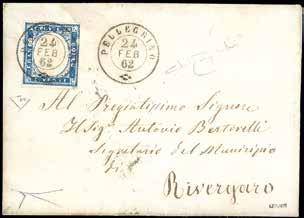 PELLEGRINO
24
FEB
62
24
FEB
62
Al Pregiatissimo Signore
Il Sig. Antonio Bertorelli
Segretario del Municipio
di
Rivergaro